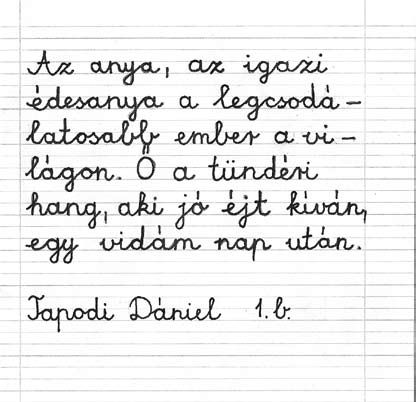 Az anya, az igazi
édesanya a legcsodá-
latosabb ember a vi-
lágon. Ő a tündéri
hang, aki jó éjt kíván,
egy vidám nap után.
Tapodi Dániel 1.b.